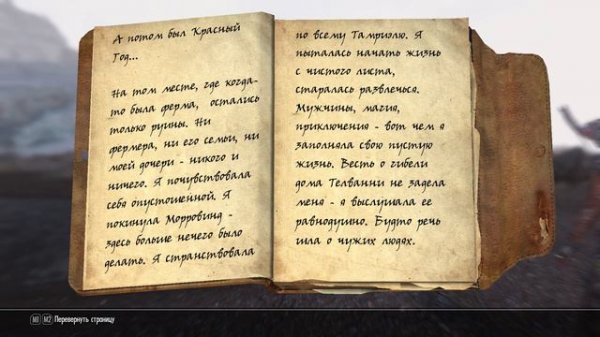 А потом был Красный
Год...
На том месте, где когда-
то была ферма, остались
только руины. Ни
фермера, ни его семьи, ни
моей дочери - никого и
ничего. Я почувствовала
себя опустошенной. Я
покинула Морровинд -
здесь больше нечего было
делать. Я странствовала
по всему Тамриэлю. Я
пыталась начать жизнь
с чистого листа,
старалась развлечься.
Мужчины, магия,
приключения - вот чем я
заполняла свою пустую
жизнь. Весть о гибели
дома Телванни не задела
меня - я выслушала ее
равнодушно. Будто речь
шла о чужих людях.
M1 M2 Перевернуть страницу